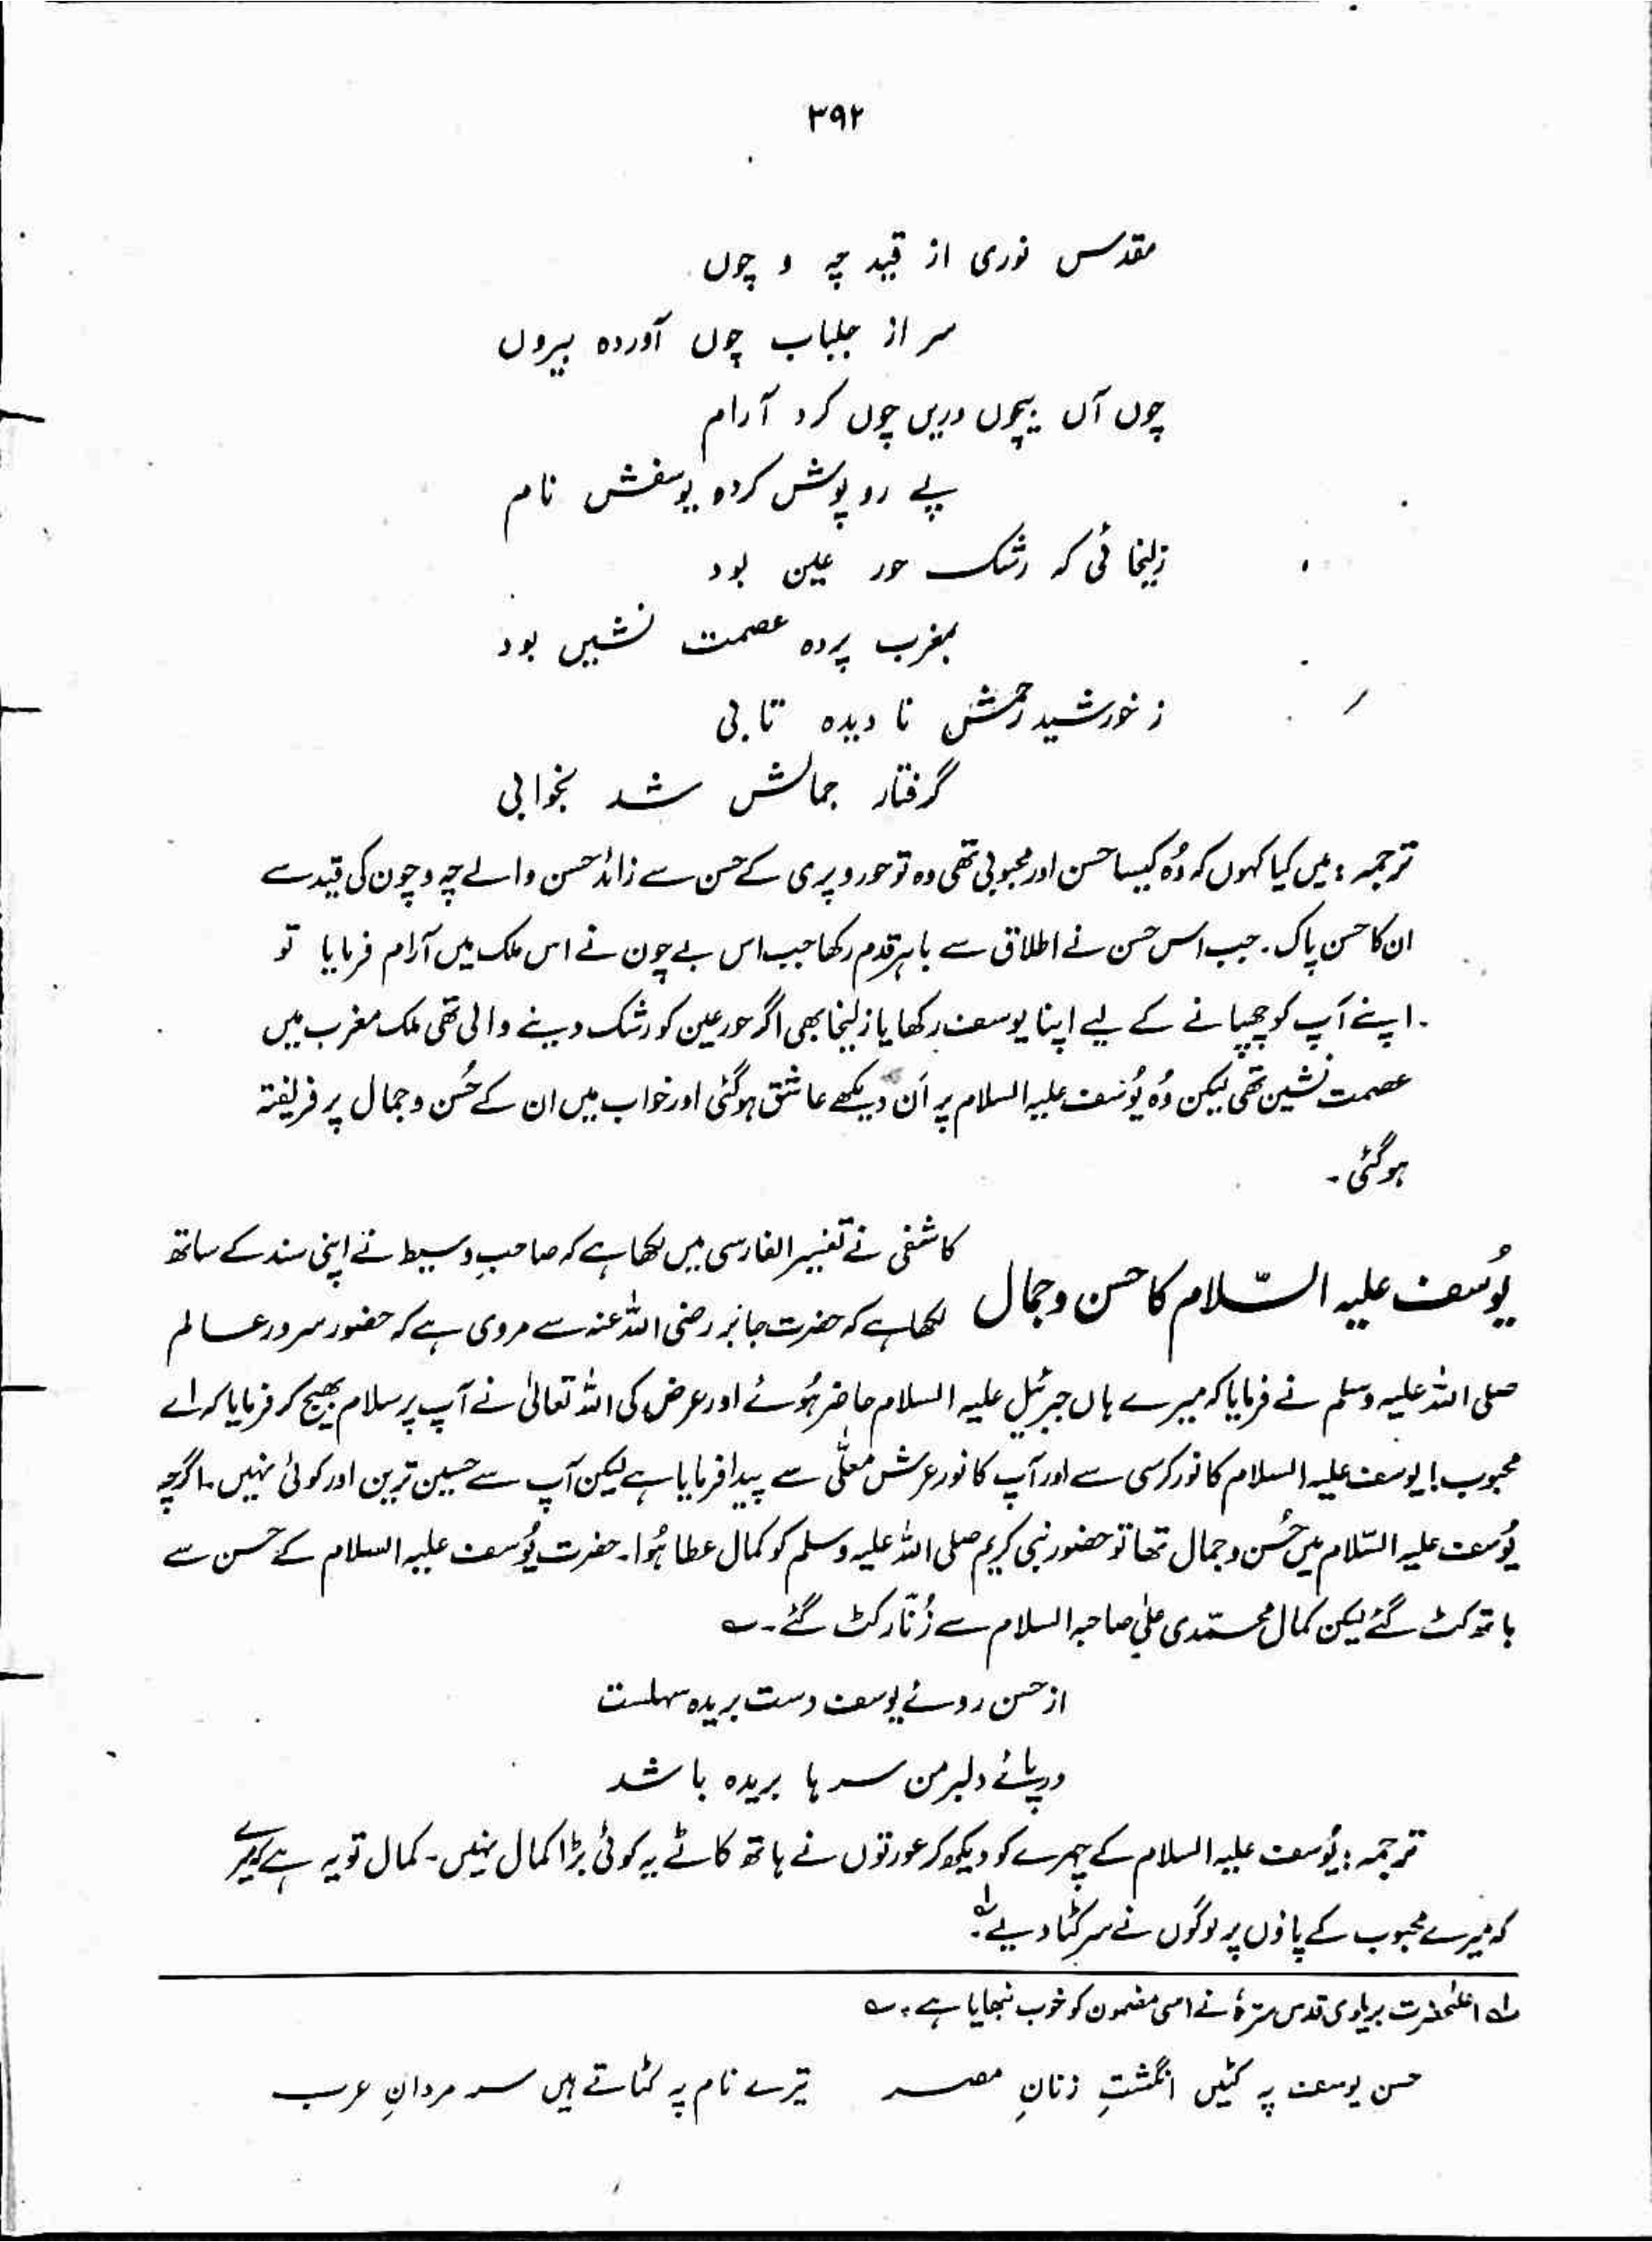 ۳۹۲
مقدس نوری از قید چہ و چوں
سر از جلباب چوں آوردہ بیروں
چوں آں بیچوں دریں چوں کرد آرام
پے روپوش کردہ یوسفش نام
زلیخائی کہ رشک حور عین بود
بمغرب پردہ عصمت نشیں بود
ز خورشید رخش نا دیدہ تابی
گرفتار جمالش شد بخوابی
ترجمہ : میں کیا کہوں کہ وُہ کیسا حسن اور محبوبی تھی وہ تو حور و پری کے حسن سے زائد حسن والے چہ و چون کی قید سے
ان کا حسن پاک ۔ جب اس حسن نے اطلاق سے باہر قدم رکھا جب اس بے چون نے اس ملک میں آرام فرمایا تو
اپنے آپ کو چھپانے کے لیے اپنا یوسف رکھایا زلیخا بھی اگر حور عین کو رشک دینے والی تھی ملک مغرب میں
عصمت نشین تھی لیکن وُہ یُوسف علیہ السلام پر اَن دیکھے عاشق ہوگئی اور خواب میں ان کے حُسن و جمال پر فریفتہ
ہوگئی ۔
یُوسف علیہ السّلام کا حسن و جمال
کاشفی نے تفسیر الفارسی میں لکھا ہے کہ صاحبِ وسیط نے اپنی سند کے ساتھ
لکھا ہے کہ حضرت جابر رضی اللہ عنہ سے مروی ہے کہ حضور سرور عالم
صلی اللہ علیہ وسلم نے فرمایا کہ میرے ہاں جبرئیل علیہ السلام حاضر ہُوئے اور عرض کی اللہ تعالیٰ نے آپ پر سلام بھیج کر فرمایا کہ اے
محبوب! یوسف علیہ السلام کا نور کرسی سے اور آپ کا نور عرش معلّٰی سے پیدا فرمایا ہے لیکن آپ سے حسین ترین اور کوئی نہیں ۔ اگرچہ
یُوسف علیہ السّلام میں حُسن و جمال تھا تو حضور نبی کریم صلی اللہ علیہ وسلم کو کمال عطا ہُوا ۔ حضرت یُوسف علیہ السلام کے حسن سے
ہاتھ کٹ گئے لیکن کمال محمّدی علیٰ صاحبہ السلام سے زُنّار کٹ گئے ۔ ؎
از حسن روئے یوسف دست بریدہ سہلست
در پائے دلبر من سرہا بریدہ باشد
ترجمہ : یُوسف علیہ السلام کے چہرے کو دیکھ کر عورتوں نے ہاتھ کاٹے یہ کوئی بڑا کمال نہیں ۔ کمال تو یہ ہے کہ میرے
کہ میرے محبوب کے پاؤں پر لوگوں نے سر کٹا دیے ۔ لہ
لہ اعلیٰحضرت بریلوی قدس سرّہٗ نے اسی مضمون کو خوب نبھایا ہے ۔ ؎
حسن یوسف پہ کٹیں انگشتِ زنانِ مصر تیرے نام پہ کٹاتے ہیں سر مردانِ عرب